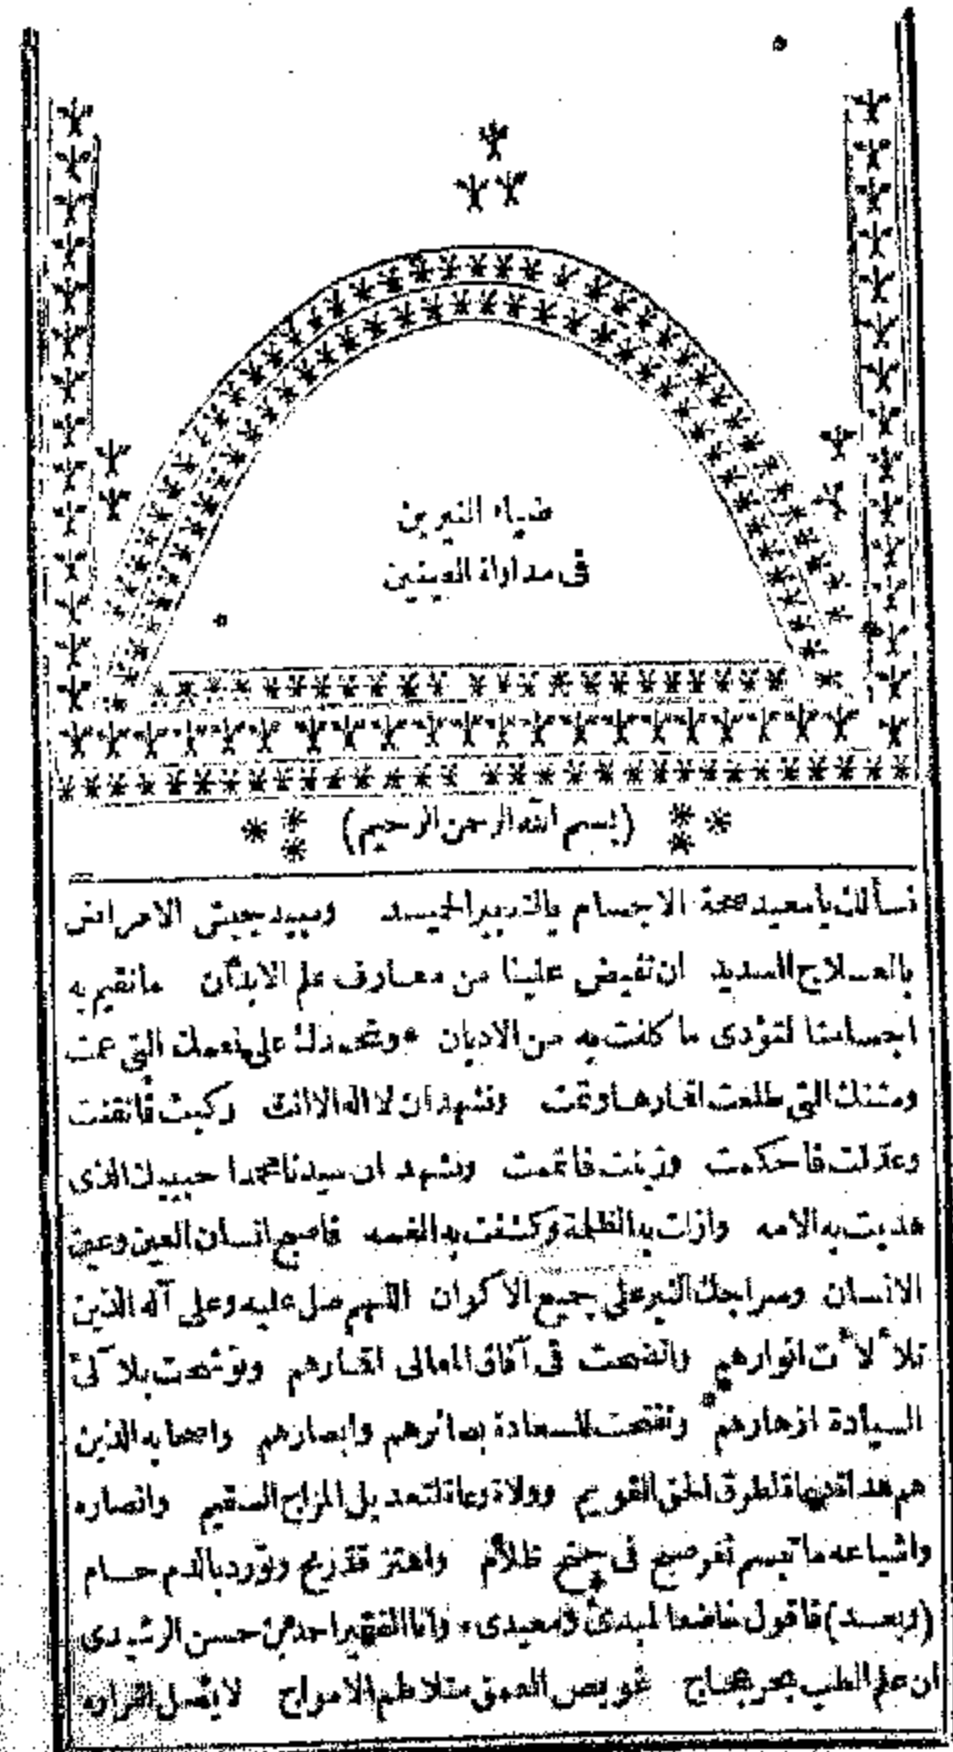 ضياء النيرين
فى مداواة العينين
(بسم الله الرحمن الرحيم)
نسألك يامعيد صحة الاجسام بالتدبير الحميد ومبيد جيش الامراض
بالعلاج السديد ان تفيض علينا من معارف علم الابدان مانقيم به
اجسامنا لتؤدى ما كلفت به من الاديان * ونحمدك على نعمك التى عمت
ومننك التى طلعت اقمارها وتمت ونشهد ان لا اله الا انت ركبت فاتقنت
وعدلت فاحكمت وزينت فاتممت ونشهد ان سيدنا محمدا حبيبك الذى
هديت به الامه وازلت به الظلمة وكشفت به الغمه فاصبح انسان العين وعين
الانسان وسراجك النير على جميع الاكوان اللهم صل عليه وعلى آله الذين
تلألأت انوارهم واتضحت فى آفاق المعالى اقمارهم وتوشحت بلآلئ
السيادة ازهارهم وتفتحت للسعادة بصائرهم وابصارهم واصحابه الذين
هم هداة لطرق الحق القويم وولاة رعاة لتعديل المزاج السقيم وانصاره
واشياعه ما تبسم ثغر صبح فى جنح ظلام واهتز قد رمح وتورد بالدم حسام
(وبعد) فاقول خاضعا لمبدئ ومعيدى * وانا الفقير احمد بن حسن الرشيدى
ان علم الطب بحر عجاج غويص العمق متلاطم الامواج لا يصل لقراره